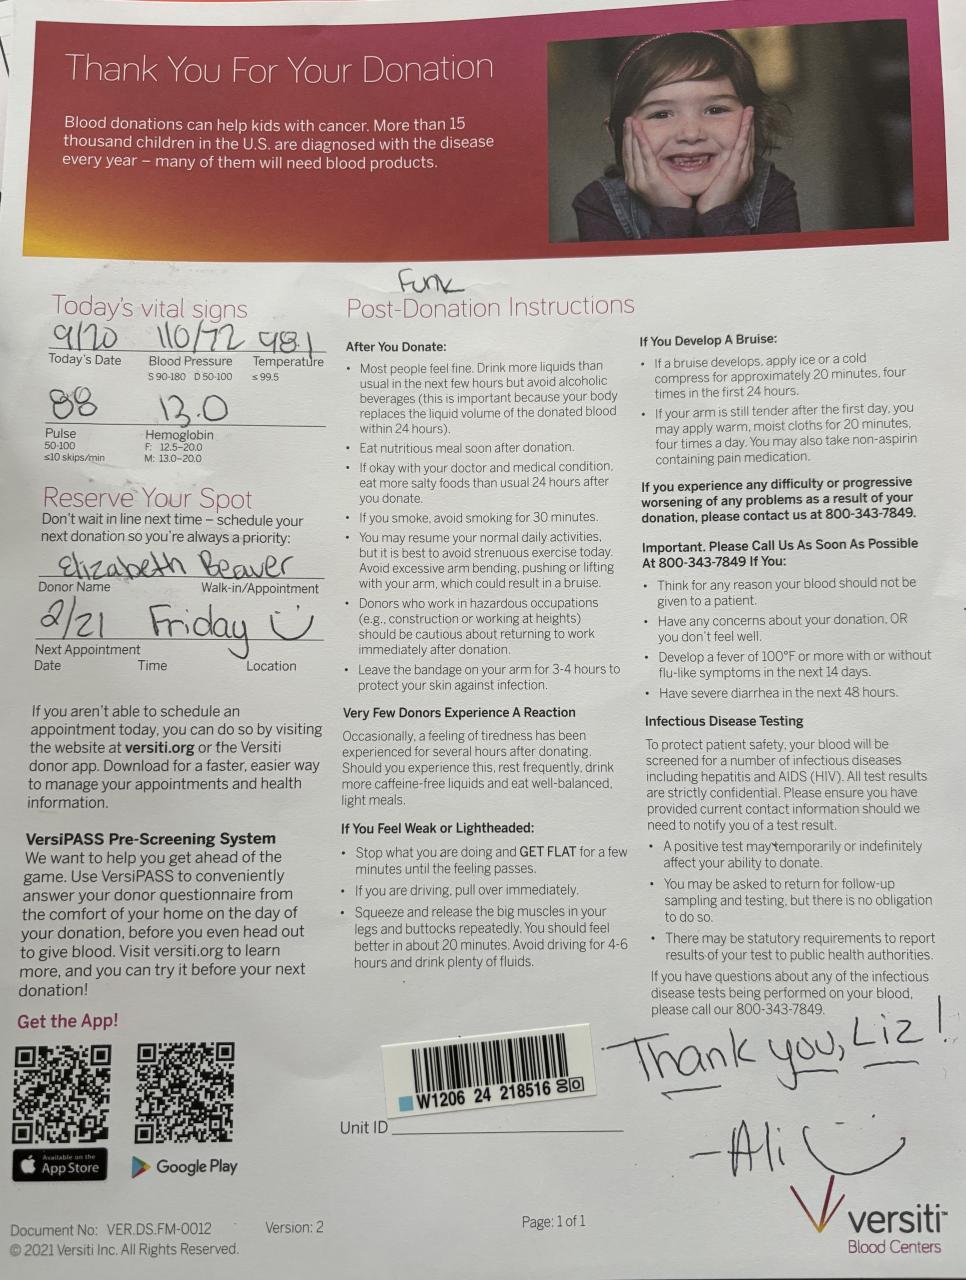 Thank You For Your Donation
Blood donations can help kids with cancer. More than 15
thousand children in the U.S. are diagnosed with the disease
every year – many of them will need blood products.
Today's vital signs
9/20 110/72 98.1
Today's Date Blood Pressure Temperature
S 90-180 D 50-100 ≤ 99.5
88 13.0
Pulse Hemoglobin
50-100 F: 12.5-20.0
≤10 skips/min M: 13.0-20.0
Reserve Your Spot
Don't wait in line next time – schedule your
next donation so you're always a priority:
Elizabeth Beaver
Donor Name Walk-in/Appointment
2/21 Friday
Next Appointment
Date Time Location
If you aren't able to schedule an
appointment today, you can do so by visiting
the website at versiti.org or the Versiti
donor app. Download for a faster, easier way
to manage your appointments and health
information.
VersiPASS Pre-Screening System
We want to help you get ahead of the
game. Use VersiPASS to conveniently
answer your donor questionnaire from
the comfort of your home on the day of
your donation, before you even head out
to give blood. Visit versiti.org to learn
more, and you can try it before your next
donation!
Get the App!
Available on the
App Store
Google Play
Funk
Post-Donation Instructions
After You Donate:
• Most people feel fine. Drink more liquids than
usual in the next few hours but avoid alcoholic
beverages (this is important because your body
replaces the liquid volume of the donated blood
within 24 hours).
• Eat nutritious meal soon after donation.
• If okay with your doctor and medical condition,
eat more salty foods than usual 24 hours after
you donate.
• If you smoke, avoid smoking for 30 minutes.
• You may resume your normal daily activities,
but it is best to avoid strenuous exercise today.
Avoid excessive arm bending, pushing or lifting
with your arm, which could result in a bruise.
• Donors who work in hazardous occupations
(e.g., construction or working at heights)
should be cautious about returning to work
immediately after donation.
• Leave the bandage on your arm for 3-4 hours to
protect your skin against infection.
Very Few Donors Experience A Reaction
Occasionally, a feeling of tiredness has been
experienced for several hours after donating.
Should you experience this, rest frequently, drink
more caffeine-free liquids and eat well-balanced,
light meals.
If You Feel Weak or Lightheaded:
• Stop what you are doing and GET FLAT for a few
minutes until the feeling passes.
• If you are driving, pull over immediately.
• Squeeze and release the big muscles in your
legs and buttocks repeatedly. You should feel
better in about 20 minutes. Avoid driving for 4-6
hours and drink plenty of fluids.
W1206 24 218516
Unit ID
If You Develop A Bruise:
• If a bruise develops, apply ice or a cold
compress for approximately 20 minutes, four
times in the first 24 hours.
• If your arm is still tender after the first day, you
may apply warm, moist cloths for 20 minutes,
four times a day. You may also take non-aspirin
containing pain medication.
If you experience any difficulty or progressive
worsening of any problems as a result of your
donation, please contact us at 800-343-7849.
Important. Please Call Us As Soon As Possible
At 800-343-7849 If You:
• Think for any reason your blood should not be
given to a patient.
• Have any concerns about your donation, OR
you don't feel well.
• Develop a fever of 100°F or more with or without
flu-like symptoms in the next 14 days.
• Have severe diarrhea in the next 48 hours.
Infectious Disease Testing
To protect patient safety, your blood will be
screened for a number of infectious diseases
including hepatitis and AIDS (HIV). All test results
are strictly confidential. Please ensure you have
provided current contact information should we
need to notify you of a test result.
• A positive test may temporarily or indefinitely
affect your ability to donate.
• You may be asked to return for follow-up
sampling and testing, but there is no obligation
to do so.
• There may be statutory requirements to report
results of your test to public health authorities.
If you have questions about any of the infectious
disease tests being performed on your blood,
please call our 800-343-7849.
Thank you, Liz!
-Ali
versiti™
Blood Centers
Document No: VER.DS.FM-0012 Version: 2 Page: 1 of 1
© 2021 Versiti Inc. All Rights Reserved.